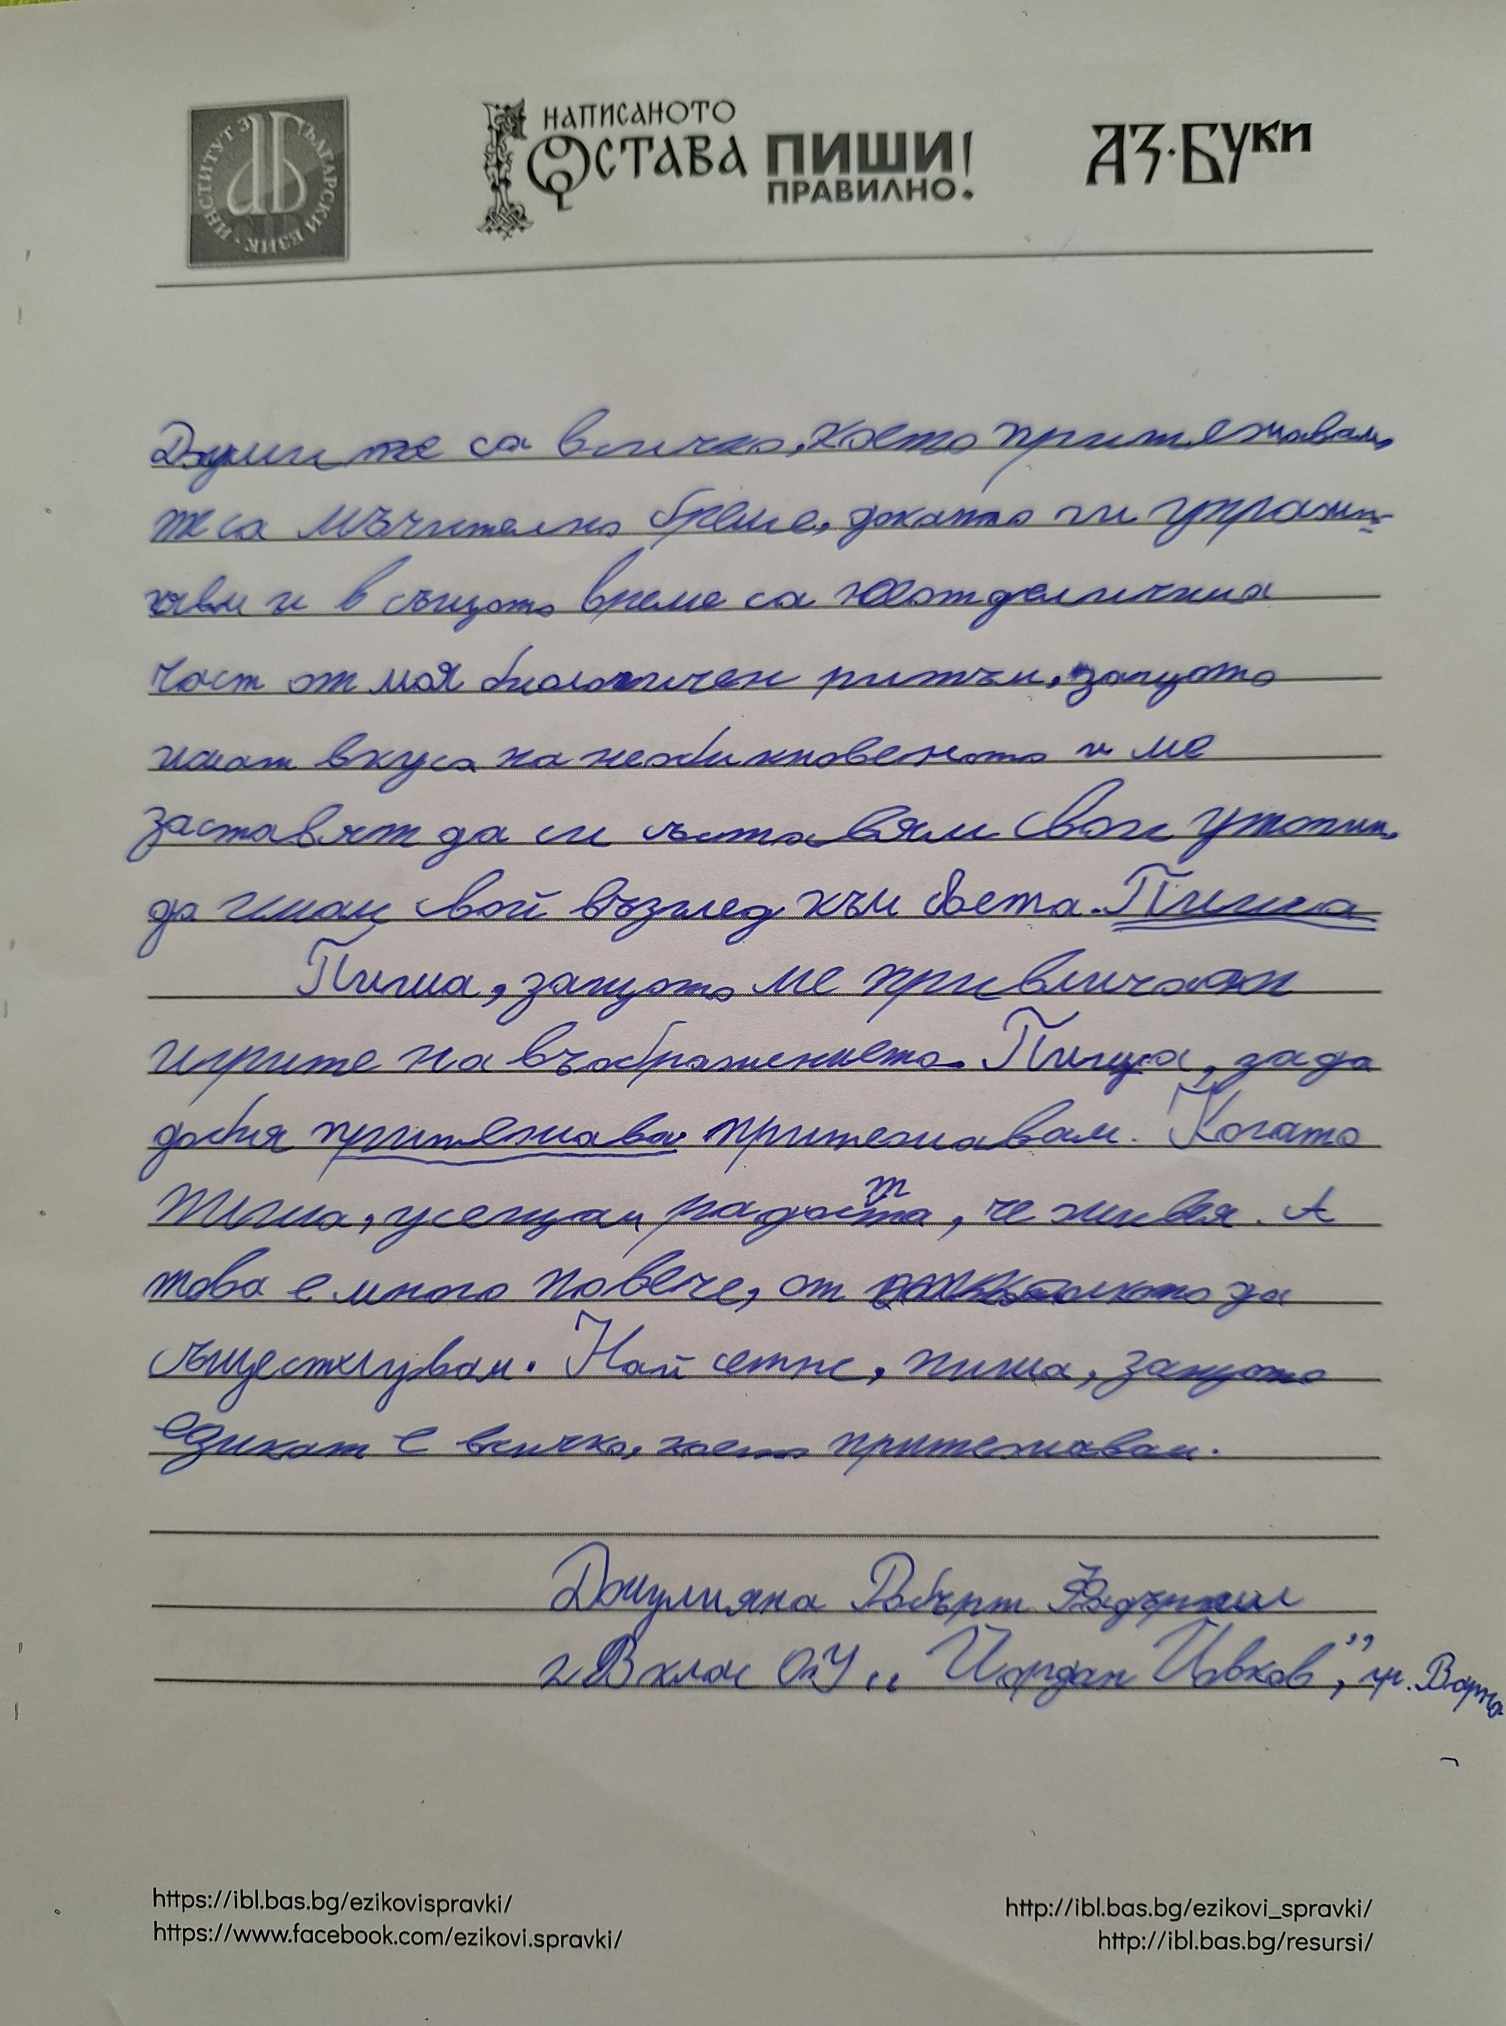 ИНСТИТУТ ЗА БЪЛГАРСКИ ЕЗИК
НАПИСАНОТО
ОСТАВА
ПИШИ
ПРАВИЛНО!
АЗ·БУКИ
Думите са всичко, което притежавам,
те са мъчително бреме, докато ги упраж-
и в същото време са неотделима
част от моя биологичен ритъм, защото
имат вкуса на необикновеното и ме
заставят да си съставям свои утопии,
да имам свой възглед към света. Пиша
Пиша, защото ме привличат
игрите на въображението. Пиша, за да
добия притежава притежавам. Когато
пиша, усещам радостта, че живея. А
това е много повече, от колкото да
съществувам. Най сетне, пиша, защото
езикът е всичко, което притежавам.
Джулияна Робърт
2 В клас ОУ „Йордан Йовков”, гр. Варна
https://ibl.bas.bg/ezikovispravki/
https://www.facebook.com/ezikovi.spravki/
http://ibl.bas.bg/ezikovi_spravki/
http://ibl.bas.bg/resursi/